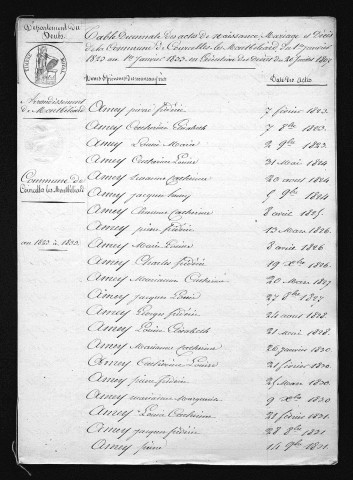 Département du
Doubs.
Table Décennale des actes de Naissance, Mariage et Décès
de la Commune de Courcelles les Montbéliard, du 1er janvier
1823 au 1er janvier 1833. en Exécution du Décret du 20 juillet 1807
Noms & prénoms
Date des actes
Arrondissement
de Montbéliard
Commune de
Courcelles les Montbéliard
au 1823 à 1833.
Amey pierre fréderic 7 février 1823.
Amey Catherine Elisabeth 7 8bre 1823.
Amey Louise 2 9bre 1823.
Amey Catherine Louise 31 Mai 1824
Amey Suzanne Catherine 20 aout 1824
Amey jacques 5 9bre 1824
Amey Catherine 8 avril 1825.
Amey pierre fréderic 13 Mars 1826
Amey Marie Louise 8 avril 1826
Amey Charles fréderic 19 Xbre 1826.
Amey Marianne Catherine 20 Mars 1827
Amey jacques Louis 27 8bre 1827.
Amey Georges fréderic 24 aout 1828
Amey Louise Elisabeth 21 Mai 1828.
Amey Marianne Catherine 26 janvier 1830.
Amey Catherine Louise 21 février 1830.
Amey pierre fréderic 25 Mars 1830.
Amey Marianne Marguerite 9 Xbre 1830.
Amey Louise Catherine 28 février 1831.
Amey jacques fréderic 28 8bre 1831
Amey pierre 14 9bre 1831.